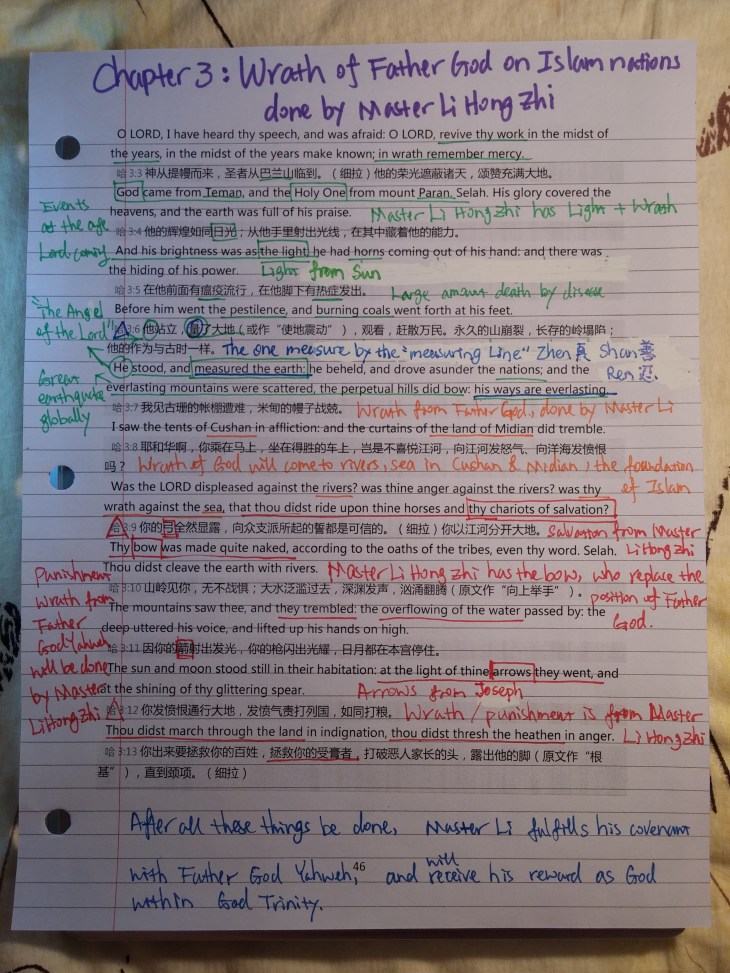 Chapter 3: Wrath of Father God on Islam nations
done by Master Li Hong Zhi
O LORD, I have heard thy speech, and was afraid: O LORD, revive thy work in the midst of
the years, in the midst of the years make known; in wrath remember mercy.
哈 3:3 神从提幔而来，圣者从巴兰山临到。（细拉）他的荣光遮蔽诸天，颂赞充满大地。
God came from Teman, and the Holy One from mount Paran. Selah. His glory covered the
heavens, and the earth was full of his praise.
Master Li Hongzhi has Light + Wrath
Events
at the age
Lord coming
哈 3:4 他的辉煌如同日光；从他手里射出光线，在其中藏着他的能力。
And his brightness was as the light; he had horns coming out of his hand: and there was
the hiding of his power.
Light from Sun
哈 3:5 在他前面有瘟疫流行，在他脚下有热症发出。
Large amount death by disease
Before him went the pestilence, and burning coals went forth at his feet.
"The Angel
of the Lord"
3:6 他站立，量了大地（或作“使地震动”），观看，赶散万民。永久的山崩裂，长存的岭塌陷；
他的作为与古时一样。
The one measure by the "measuring Line" Zhen 真 Shan 善
Ren 忍.
He stood, and measured the earth: he beheld, and drove asunder the nations; and the
everlasting mountains were scattered, the perpetual hills did bow: his ways are everlasting.
Great
earthquake
globally
哈 3:7 我见古珊的帐棚遭难，米甸的幔子战兢。
Wrath from Father God, done by Master Li
I saw the tents of Cushan in affliction: and the curtains of the land of Midian did tremble.
哈 3:8 耶和华啊，你乘在马上，坐在得胜的车上，岂是不喜悦江河，向江河发怒气、向洋海发愤恨
吗？
Wrath of God will come to rivers, sea in Cushan & Midian, the foundation
of Islam
Was the LORD displeased against the rivers? was thine anger against the rivers? was thy
wrath against the sea, that thou didst ride upon thine horses and thy chariots of salvation?
哈 3:9 你的弓全然显露，向众支派所起的誓都是可信的。（细拉）你以江河分开大地。
Salvation from Master
Li Hongzhi
Thy bow was made quite naked, according to the oaths of the tribes, even thy word. Selah.
Thou didst cleave the earth with rivers.
Master Li Hongzhi has the bow, who replace the
position of Father
God.
哈 3:10 山岭见你，无不战惧；大水泛滥过去，深渊发声，汹涌翻腾（原文作“向上举手”）。
The mountains saw thee, and they trembled: the overflowing of the water passed by: the
deep uttered his voice, and lifted up his hands on high.
Punishment
Wrath from
Father
God Yahweh
will be done
by Master
Li Hong Zhi
哈 3:11 因你的箭射出发光，你的枪闪出光耀，日月都在本宫停住。
The sun and moon stood still in their habitation: at the light of thine arrows they went, and
at the shining of thy glittering spear.
Arrows from Joseph
哈 3:12 你发愤恨通行大地，发怒气责打列国，如同打粮。
Wrath / punishment is from Master
Li Hongzhi
Thou didst march through the land in indignation, thou didst thresh the heathen in anger.
哈 3:13 你出来要拯救你的百姓，拯救你的受膏者，打破恶人家长的头，露出他的脚（原文作“根
基”），直到颈项。（细拉）
After all these things be done, Master Li fulfills his covenant
with Father God Yahweh, and will receive his reward as God
within God Trinity.
46